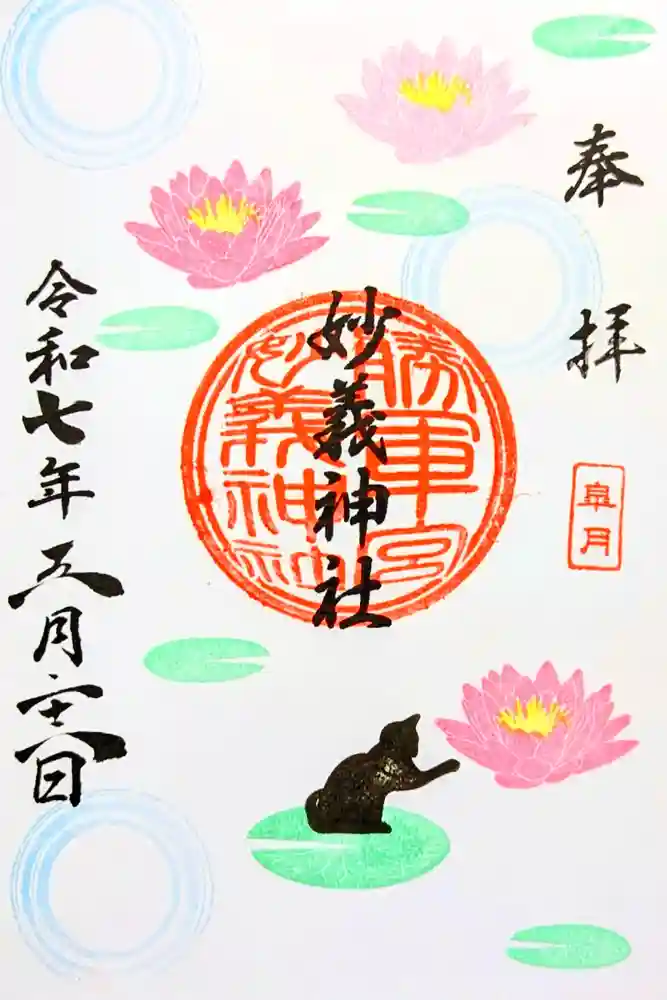 奉拝
皐月
妙義神社
勝軍宮
妙義神社
令和七年五月二十八日